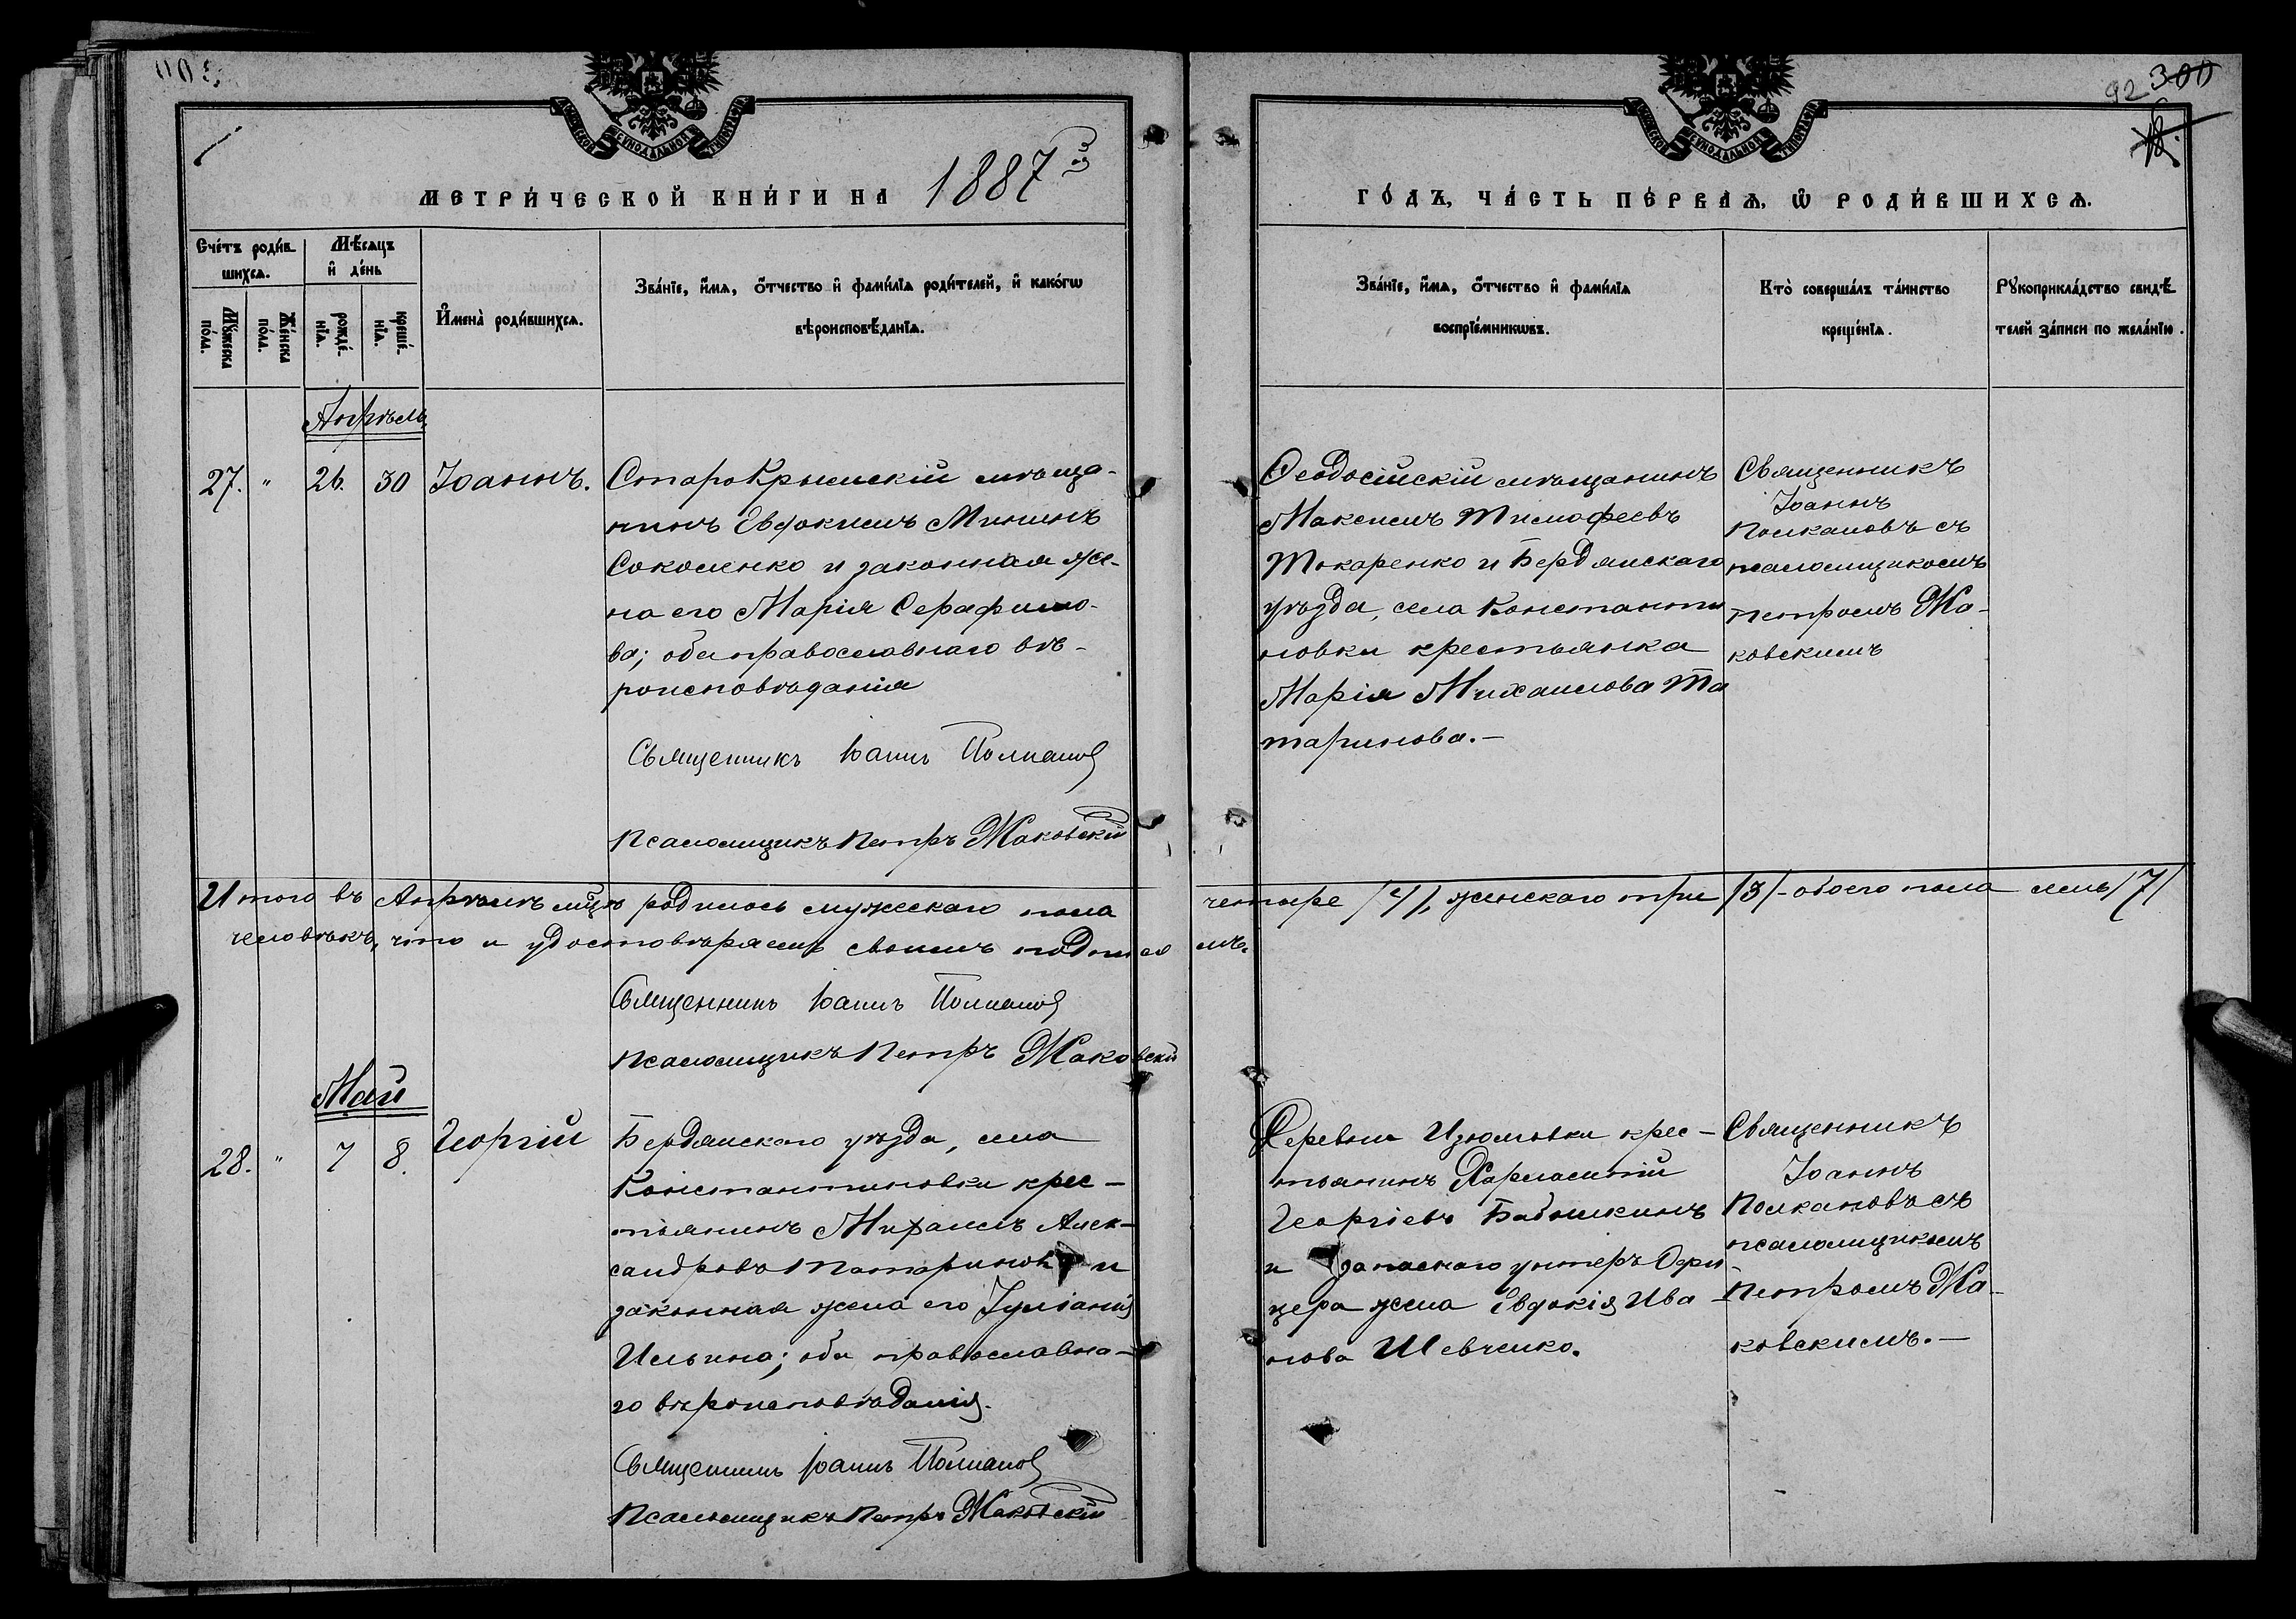 300
92 300
МЕТРИ́ЧЕСКОЙ КНИ́ГИ НА 1887й
ГО́ДЪ, ЧА́СТЬ ПЕ́РВАѦ, Ѽ РОДИ́ВШИХСѦ.
Сче́тъ роди́вшихсѧ.
Мꙋ́жеска по́ла.
Же́нска по́ла.
Мѣ́сѧцъ и҆ де́нь
рожде́нїѧ.
креще́нїѧ.
И҆мена̀ роди́вшихсѧ.
Зва́нїе, и҆́мѧ, ѻ҆́тчество и҆ фами́лїѧ роди́телей, и҆ како́гѡ
вѣроисповѣ́данїѧ.
Зва́нїе, и҆́мѧ, ѻ҆́тчество и҆ фами́лїѧ
воспрїе́мникѡвъ.
Кто̀ соверша́лъ та́инство
креще́нїѧ.
Рꙋкоприкла́дство свидѣ́
телей за́писи по жела́нїю.
Апрѣль
27. " 26. 30 Іоаннъ.
СтароКрымскій мѣща-
нинъ Евфокимъ Мининъ
Соколенко и законная же-
на его Марія Серафимо-
ва; оба православнаго вѣ-
роисповѣданія
Священникъ Іоаннъ Полкановъ
Псаломщикъ Петръ Жаковскій
Ѳеодосійскій мѣщанинъ
Максимъ Тимофеевъ
Токаренко и Бердянскаго
уѣзда, села Константи
новки крестьянка
Марія Михаилова Та
таринова.—
Священникъ
Іоаннъ
Полкановъ съ
псаломщикомъ
Петромъ Жа-
ковскимъ
Итого въ Апрѣлѣ мцѣ родилось мужескаго пола четыре /4/, женскаго три /3/ - обоего пола семь /7/
человѣкъ, что и удостовѣряемъ своимъ подписомъ.
Священникъ Іоаннъ Полкановъ
Псаломщикъ Петръ Жаковскій
Май
28. " 7 8. Георгій
Бердянскаго уѣзда, села
Константиновки крес-
тьянинъ Михаилъ Алек-
сандровъ Татариновъ и
законная жена его Іуліанія
Ильина; оба православна-
го вѣроисповѣданія.
Священникъ Іоаннъ Полкановъ
Псаломщикъ Петръ Жаковскій
Деревни Изюмовки крес-
тьянинъ Харлампій
Георгіевъ Бабушкинъ
и запаснаго унтеръ Офи
цера жена Евдокія Ива
нова Шевченко.
Священникъ
Іоаннъ
Полкановъ съ
псаломщикомъ
Петромъ Жа-
ковскимъ.—